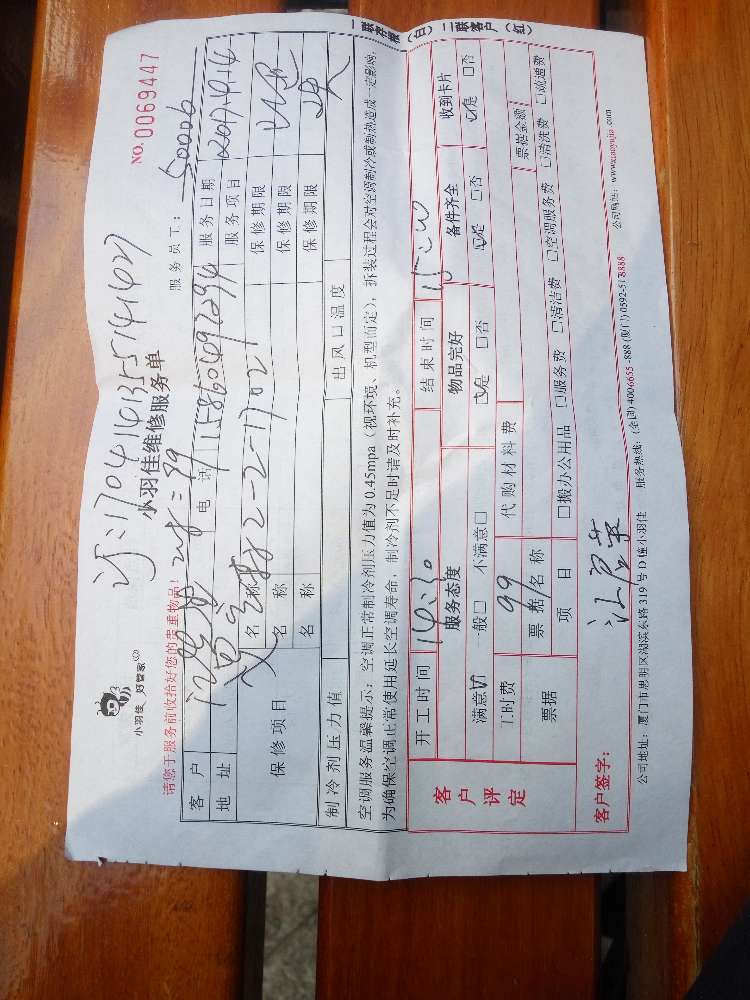 小羽佳 好管家
NO.0069447
小羽佳维修服务单
请您于服务前收拾好您的贵重物品！
服务员工： 50006
客户 电话 15860492294 服务日期 2017.4.14
地址 2-2-1702 服务项目
保修项目 名称 保修期限
名称 保修期限
名称 保修期限
制冷剂压力值 出风口温度
空调服务温馨提示：空调正常制冷剂压力值为0.45mpa（视环境、机型而定），拆装过程会对空调制冷或制热造成一定影响，
为确保空调正常使用延长空调寿命，制冷剂不足时请及时补充。
客户评定
开工时间 14:30 结束时间 15:00
服务态度 物品完好 备件齐全 收到卡片
满意☑ 一般□ 不满意□ ☑是 □否 ☑是 □否 ☑是 □否
工时费 99 代购材料费
票据 票据名称 票据金额
项目 □搬办公用品 □服务费 □清洁费 □空调服务费 □清洗费 □疏通费
客户签字：
公司地址：厦门市思明区湖滨东路319号D幢小羽佳 服务热线：(全国)4006655-888 (厦门)0592-5178888 公司网站：www.xiaoyujia.com
一联存根（白）二联客户（红）